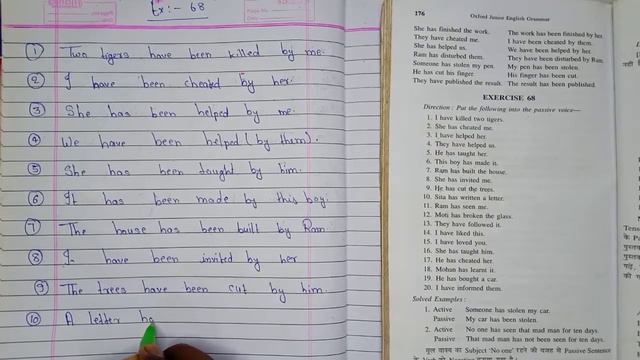 Ex:- 68
Page No.
Date
① Two tigers have been killed by me.
② I have been cheated by her.
③ She has been helped by me.
④ We have been helped (by them).
⑤ She has been taught by him.
⑥ It has been made by this boy.
⑦ The house has been built by Ram
⑧ I have been invited by her
⑨ The trees have been cut by him.
⑩ A letter ha
176 Oxford Junior English Grammar
She has finished the work. The work has been finished by her.
They have cheated me. I have been cheated by them.
She has helped us. We have been helped by her.
Ram has disturbed them. They have been disturbed by Ram.
Someone has stolen my pen. My pen has been stolen.
He has cut his finger. His finger has been cut.
They have published the result. The result has been published.
EXERCISE 68
Direction: Put the following into the passive voice—
1. I have killed two tigers.
2. She has cheated me.
3. I have helped her.
4. They have helped us.
5. He has taught her.
6. This boy has made it.
7. Ram has built the house.
8. She has invited me.
9. He has cut the trees.
10. Sita has written a letter.
11. Ram has seen me.
12. Moti has broken the glass.
13. They have followed it.
14. I have liked this.
15. I have loved you.
16. She has taught him.
17. He has cheated her.
18. Mohan has learnt it.
19. He has bought a car.
20. I have informed them.
Solved Examples :
1. Active Someone has stolen my car.
Passive My car has been stolen.
2. Active No one has seen that mad man for ten days.
Passive That mad man has not been seen for ten days.
मूल वाक्य का Subject 'No one' रहने की वजह से Passive Sentence